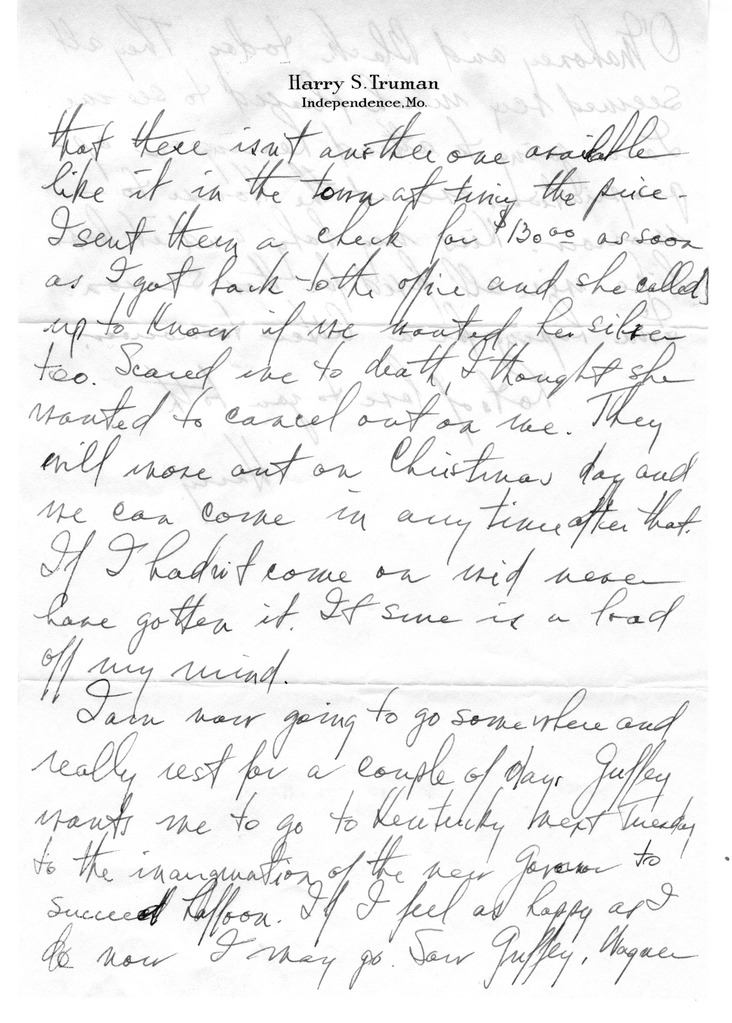 Harry S. Truman
Independence, Mo.
that there isn't another one available
like it in the town at twice the price.
I sent them a check for $130.00 as soon
as I got back to the office and she called
up to know if we wanted her silver
too. Scared me to death, I thought she
wanted to cancel out on me. They
will move out on Christmas day and
we can come in any time after that.
If I hadn't come on we'd never
have gotten it. It sure is a load
off my mind.
I am now going to go somewhere and
really rest for a couple of days. Guffey
wants me to go to Kentucky next Tuesday
to the inauguration of the new Governor to
succeed Laffoon. If I feel as happy as I
do now I may go. Saw Guffey, Wagner